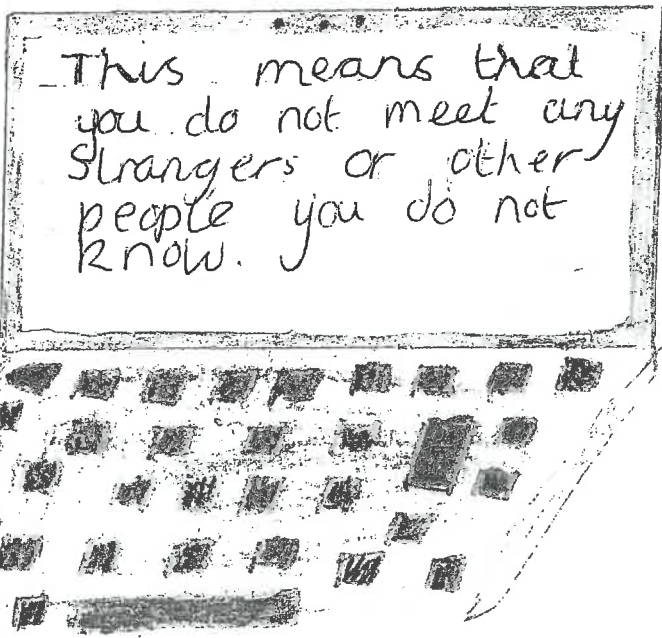 This means that
you do not meet any
strangers or other
people you do not
know.